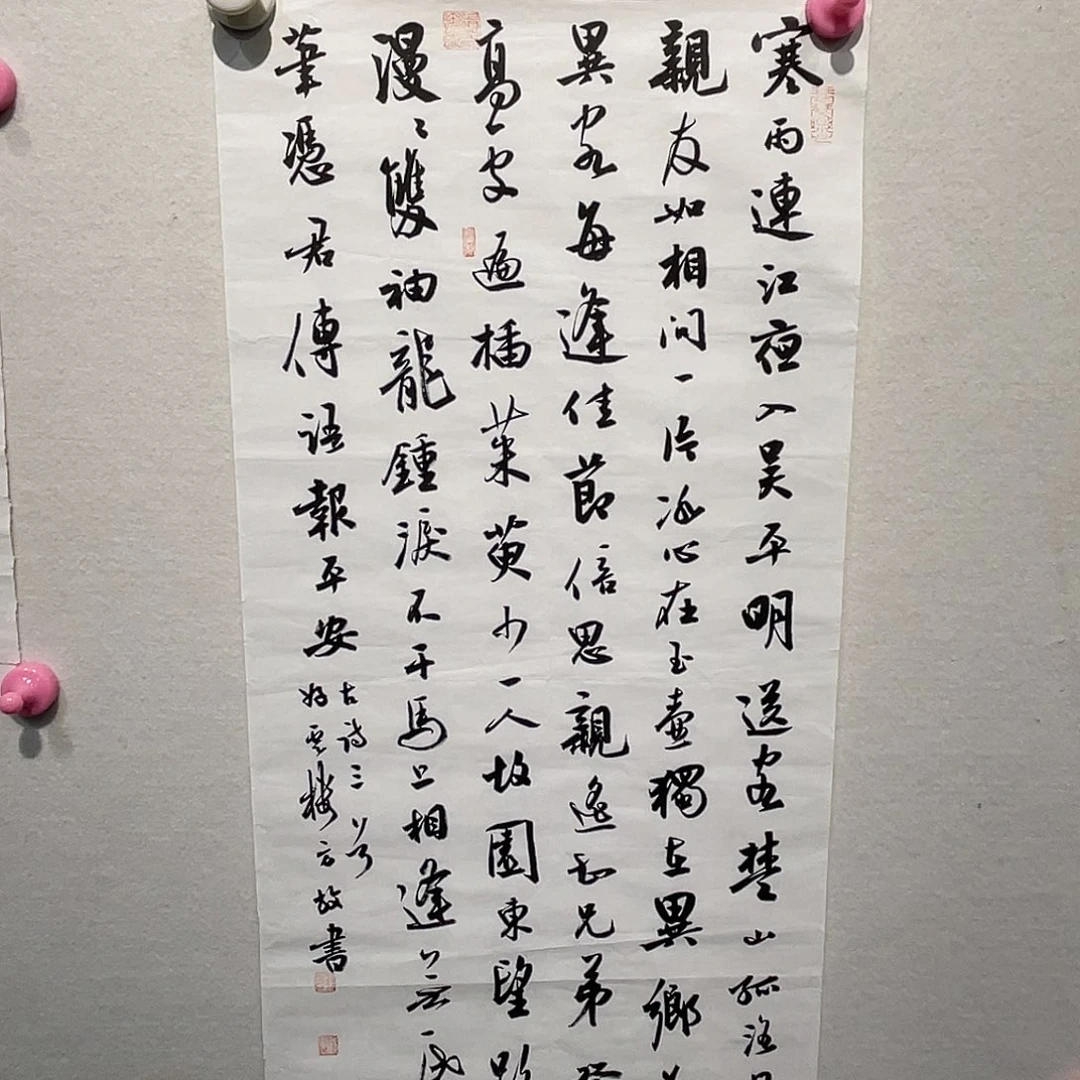 寒雨連江夜入吳平明送客楚山孤洛
親友如相問一片冰心在玉壺獨在異鄉
異客每逢佳節倍思親遙知兄弟
高處遍插茱萸少一人故園東望路
漫〻雙袖龍鍾淚不干馬上相逢無
筆憑君傳語報平安
古詩三首
樓方 書